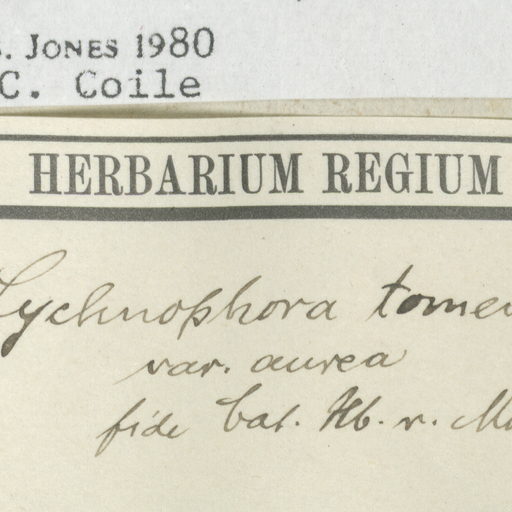 S. JONES 1980
C. Coile
HERBARIUM REGIUM
Lychnophora tomen
var. aurea
fide Cat. Hb. v. Ma